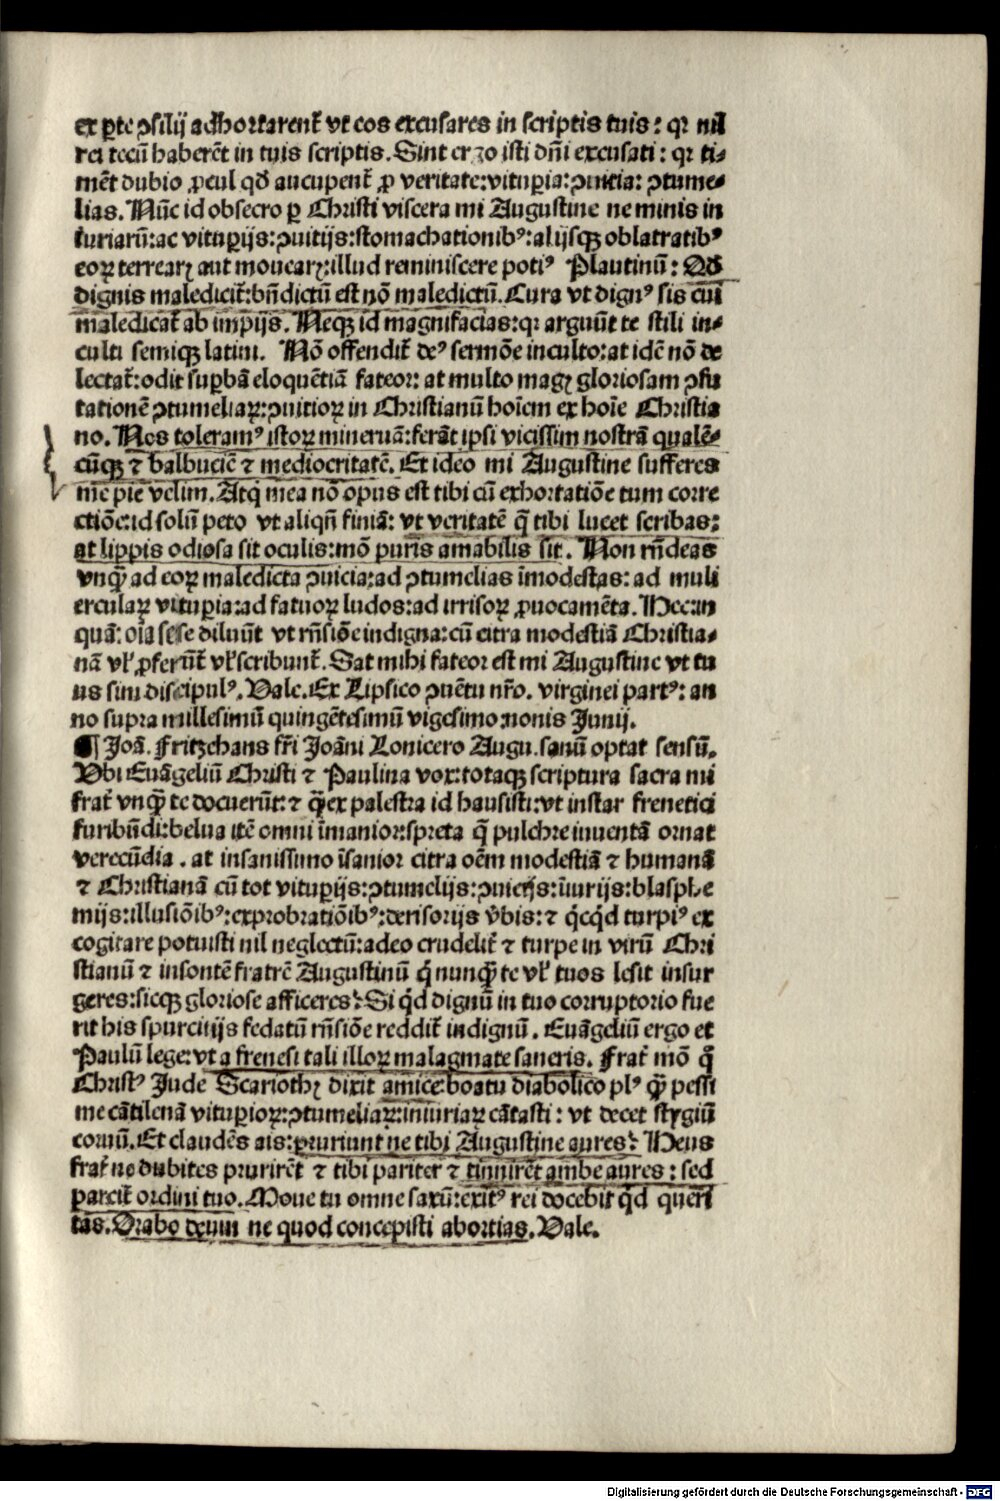 ex ꝑte ꝯsilij adhortarent᷑ vt eos excusares in scriptis tuis: qꝛ nil
rei tecū haberēt in tuis scriptis. Sint ergo isti dn̄i excusati: qꝛ ti⸗
mēt dubio ꝓcul qd̓ aucupent᷑ ꝓ veritate: vituꝑia: ꝯuicia: ꝯtume⸗
lias. Nūc id obsecro ꝑ Christi viscera mi Augustine ne minis in
iuriarū: ac vituꝑijs: ꝯuitijs: stomachationibꝰ: alijsqꝫ oblatratibꝰ
eoꝝ terrearꝭ aut mouearꝭ: illud reminiscere potiꝰ Plautinū: Qd̓
dignis maledicit᷑: bn̄dictū est nō maledictū. Cura vt dignꝰ sis cui
maledicat᷑ ab impijs. Neqꝫ id magnifacias: qꝛ arguūt te stili in⸗
culti semiqꝫ latini. Nō offendit᷑ deꝰ sermōe inculto: at idē nō de
lectat᷑: odit suꝑbā eloquētiā fateor: at multo magꝭ gloriosam ꝯfu
tationē ꝯtumeliaꝝ: ꝯuitioꝝ in Christianū hoīem ex hoīe Christia
no. Nos toleramꝰ istoꝝ mineruā: ferāt ipsi vicissim nostrā qualē⸗
cūqꝫ ⁊ balbuciē ⁊ mediocritatē. Et ideo mi Augustine sufferes
me pie velim. Atq̃ mea nō opus est tibi cū exhortatiōe tum corre
ctiōe: id solū peto vt aliqn̄ finiā: vt veritatē q̄ tibi lucet scribas:
at lippis odiosa sit oculis: mō puris amabilis sit. Non rn̄deas
vnqꝫ̄ ad eoꝝ maledicta ꝯuicia: ad ꝯtumelias īmodestas: ad muli
erculaꝝ vituꝑia: ad fatuoꝝ ludos: ad irrisoꝝ ꝓuocamēta. Hec: in
quā: oīa sese diluūt vt rn̄siōe indigna: cū citra modestiā Christia⸗
nā vl̓ ꝓferūt᷑ vl̓ scribunt᷑. Sat mihi fateor est mi Augustine vt tu
us sim discipulꝰ. Vale. Ex Lipsico ꝯuētu nr̄o. virginei partꝰ: an
no supra millesimū quingētesimū vigesimo: nonis Junij.
¶ Joā. Fritzchans fr̄i Joāni Lonicero Augu. sanū optat sensū.
Vbi Euāgeliū Christi ⁊ Paulina vox: totaqꝫ scriptura sacra mi
frat᷑ vnqꝫ̄ te docuerūt: ⁊ q̄ ex palestra id hausisti: vt instar frenetici
furibūdi: belua itē omni īmanior: spreta q̄ pulchre inuentā ornat
verecūdia. at insanissimo īsanior citra oēm modestiā ⁊ humanā
⁊ Christianā cū tot vituꝑijs: ꝯtumelijs: ꝯuicijs: iniurijs: blasphe
mijs: illusiōibꝰ: exprobratiōibꝰ: derisorijs v̓bis: ⁊ q̇cq̇d turpiꝰ ex
cogitare potuisti nil neglectū: adeo crudelit᷑ ⁊ turpe in virū Chri
stianū ⁊ insontē fratrē Augustinū q̇ nunqꝫ̄ te vl̓ tuos lesit insur
geres: sicqꝫ gloriose afficeres? Si q̇d dignū in tuo corruptorio fue
rit his spurcitijs fedatū rn̄siōe reddit᷑ indignū. Euāgeliū ergo et
Paulū lege: vt a frenesi tali illoꝝ malagmate saneris. Frat᷑ mō q̊
Christꝰ Jude Scariothꝭ dixit amice: boatu diabolico plꝰ qꝫ̄ pessi
me cātilenā vituꝑioꝝ: ꝯtumeliaꝝ: iniuriaꝝ cātasti: vt decet stygiū
coruū. Et claudēs ais: pruriunt ne tibi Augustine aures? Heus
frat᷑ ne dubites prurirēt ⁊ tibi pariter ⁊ tinnirēt ambe aures: sed
parcit᷑ ordini tuo. Moue tu omne saxū: exitꝰ rei docebit q̇d queri
tas. Drabo deum ne quod concepisti abortias. Vale.
Digitalisierung gefördert durch die Deutsche Forschungsgemeinschaft - DFG